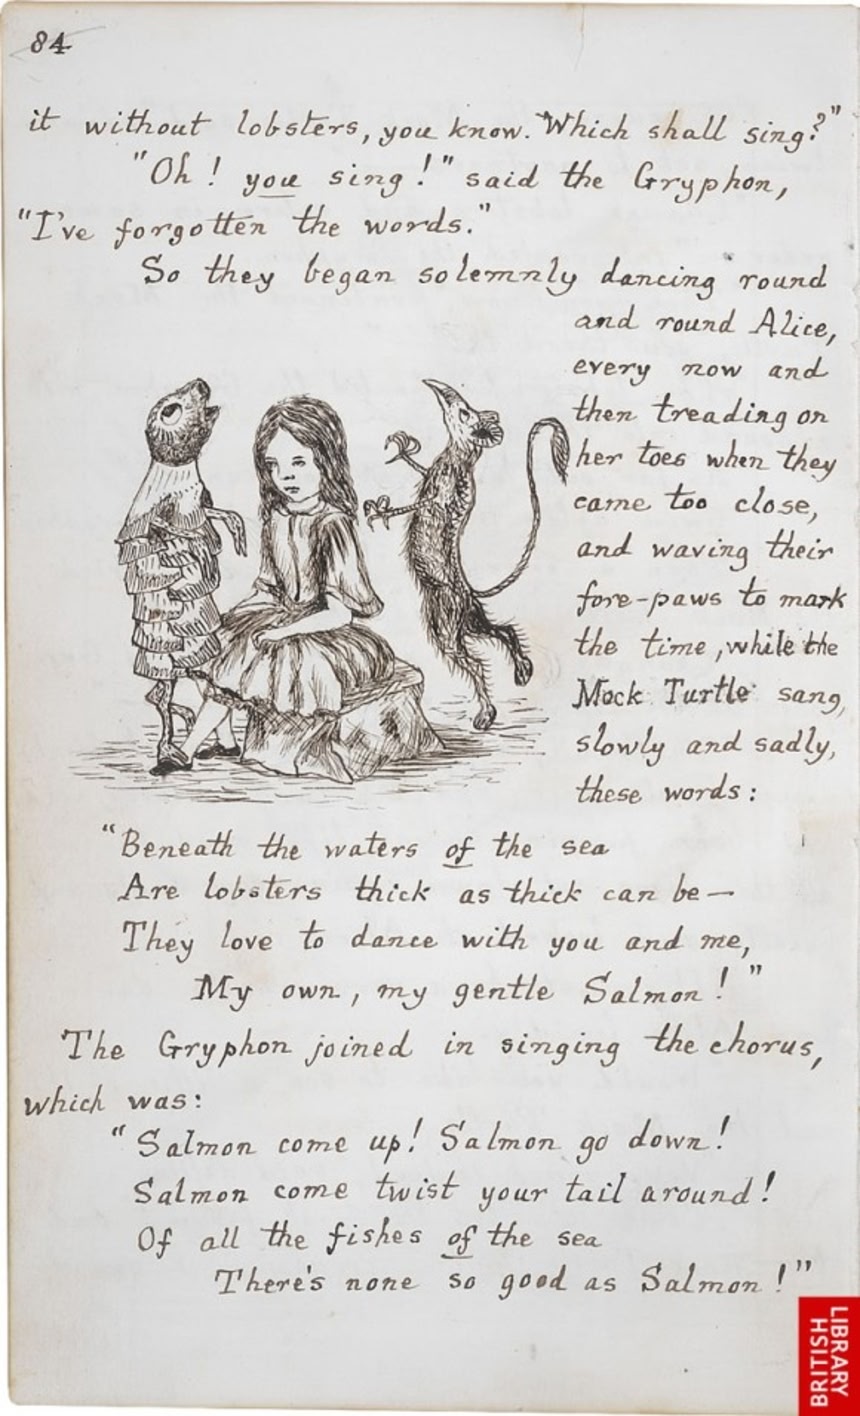 84
it without lobsters, you know. Which shall sing?"
"Oh! you sing!" said the Gryphon,
"I've forgotten the words."
So they began solemnly dancing round
and round Alice,
every now and
then treading on
her toes when they
came too close,
and waving their
fore-paws to mark
the time, while the
Mock Turtle sang,
slowly and sadly,
these words:
"Beneath the waters of the sea
Are lobsters thick as thick can be—
They love to dance with you and me,
My own, my gentle Salmon!"
The Gryphon joined in singing the chorus,
which was:
"Salmon come up! Salmon go down!
Salmon come twist your tail around!
Of all the fishes of the sea
There's none so good as Salmon!"
BRITISH
LIBRARY